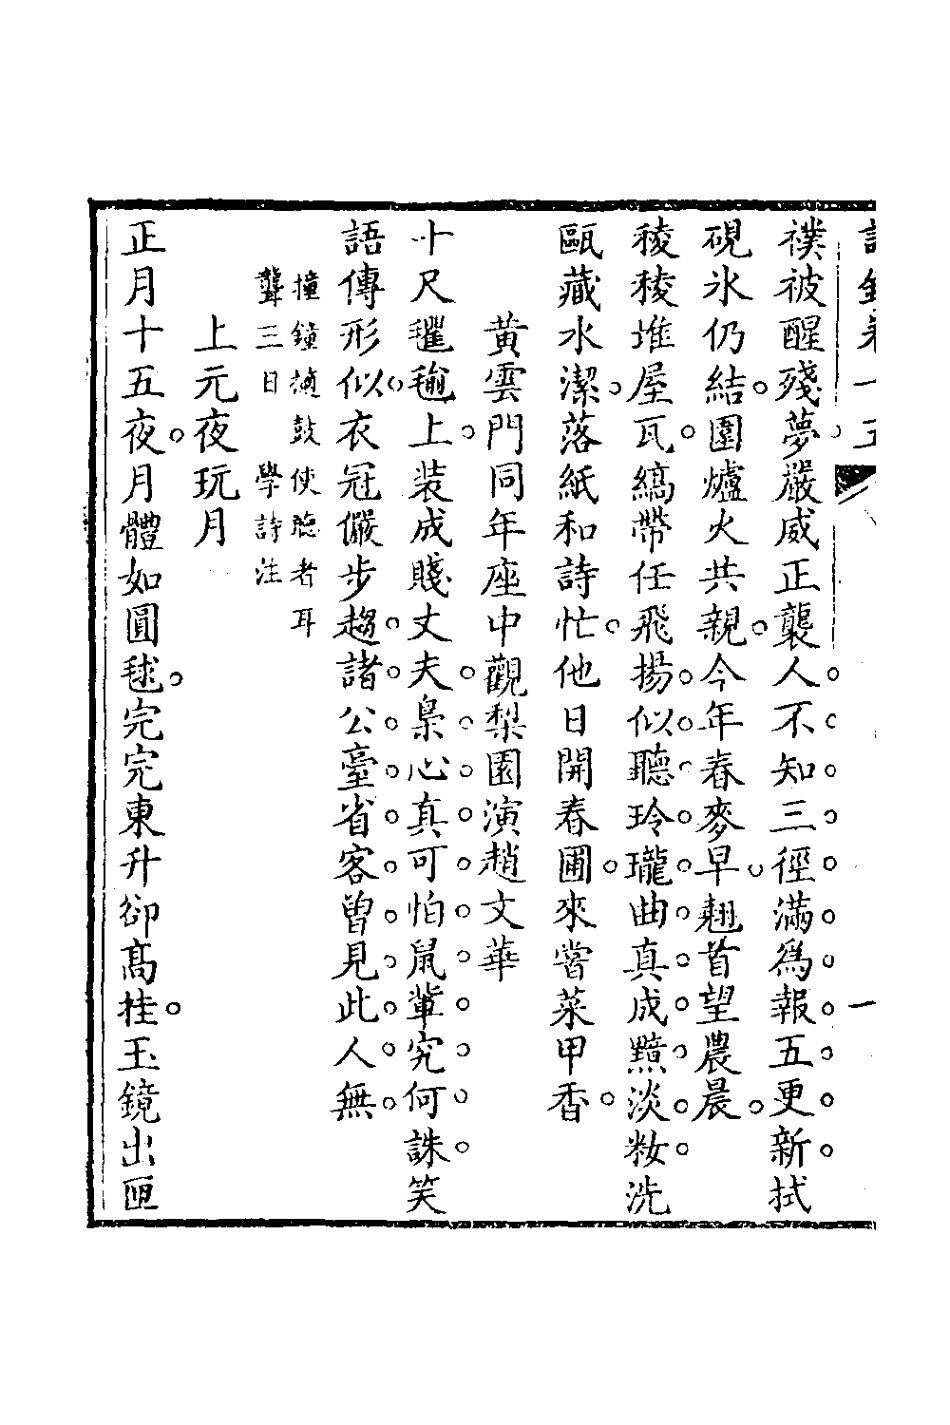 襆被醒殘夢嚴威正襲人不知三徑滿爲報五更新拭
硯氷仍結圍爐火共親今年春麥早翹首望農晨
稜稜堆屋瓦縞帶任飛揚似聽玲瓏曲真成黰淡粧洗
甌藏水潔落紙和詩忙他日開春圃來嘗菜甲香
黄雲門同年座中觀梨園演趙文華
十尺氍毹上装成賤丈夫梟心真可怕鼠輩究何誅笑
語傳形似衣冠儼步趨諸公臺省客曾見此人無
撞鐘撾鼓使聽者耳
聾三日 學詩注
上元夜玩月
正月十五夜月體如圓毬完完東升卻高挂玉鏡出匣